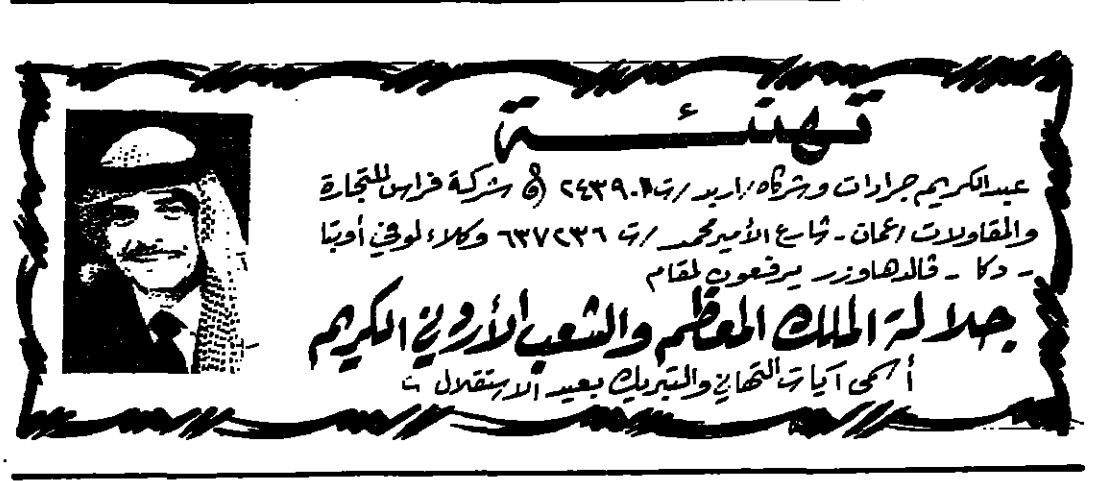 تهنئة
عبدالكريم جرادات وشركاه / اربد / ت ٢٤٣٩٠٨ شركة فراس للتجارة
والمقاولات / عمان - شارع الأمير محمد / ت ٦٣٧٢٣٦ وكلاء لوفي أوبتا
- دكا - فالدهاوزر يرفعون لمقام
جلالة الملك المعظم والشعب الأردني الكريم
أسمى آيات التهاني والتبريك بعيد الاستقلال